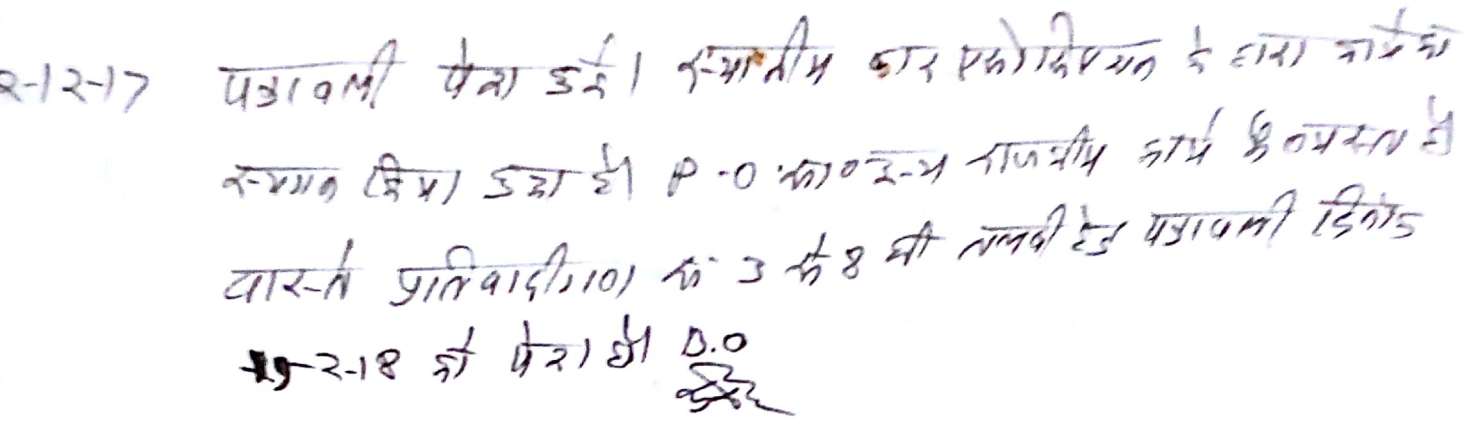 2-12-17 पत्रावली पेश हुई। स्थानीय बार एसोसिएशन के द्वारा कार्य का
स्थगन किया हुआ है। P.O. अन्य राजकीय कार्य में व्यस्त है
वास्ते प्रतिवादीगण सं 3 से 8 की तलबी हेतु पत्रावली दिनांक
2-18 को पेश हो। B.O